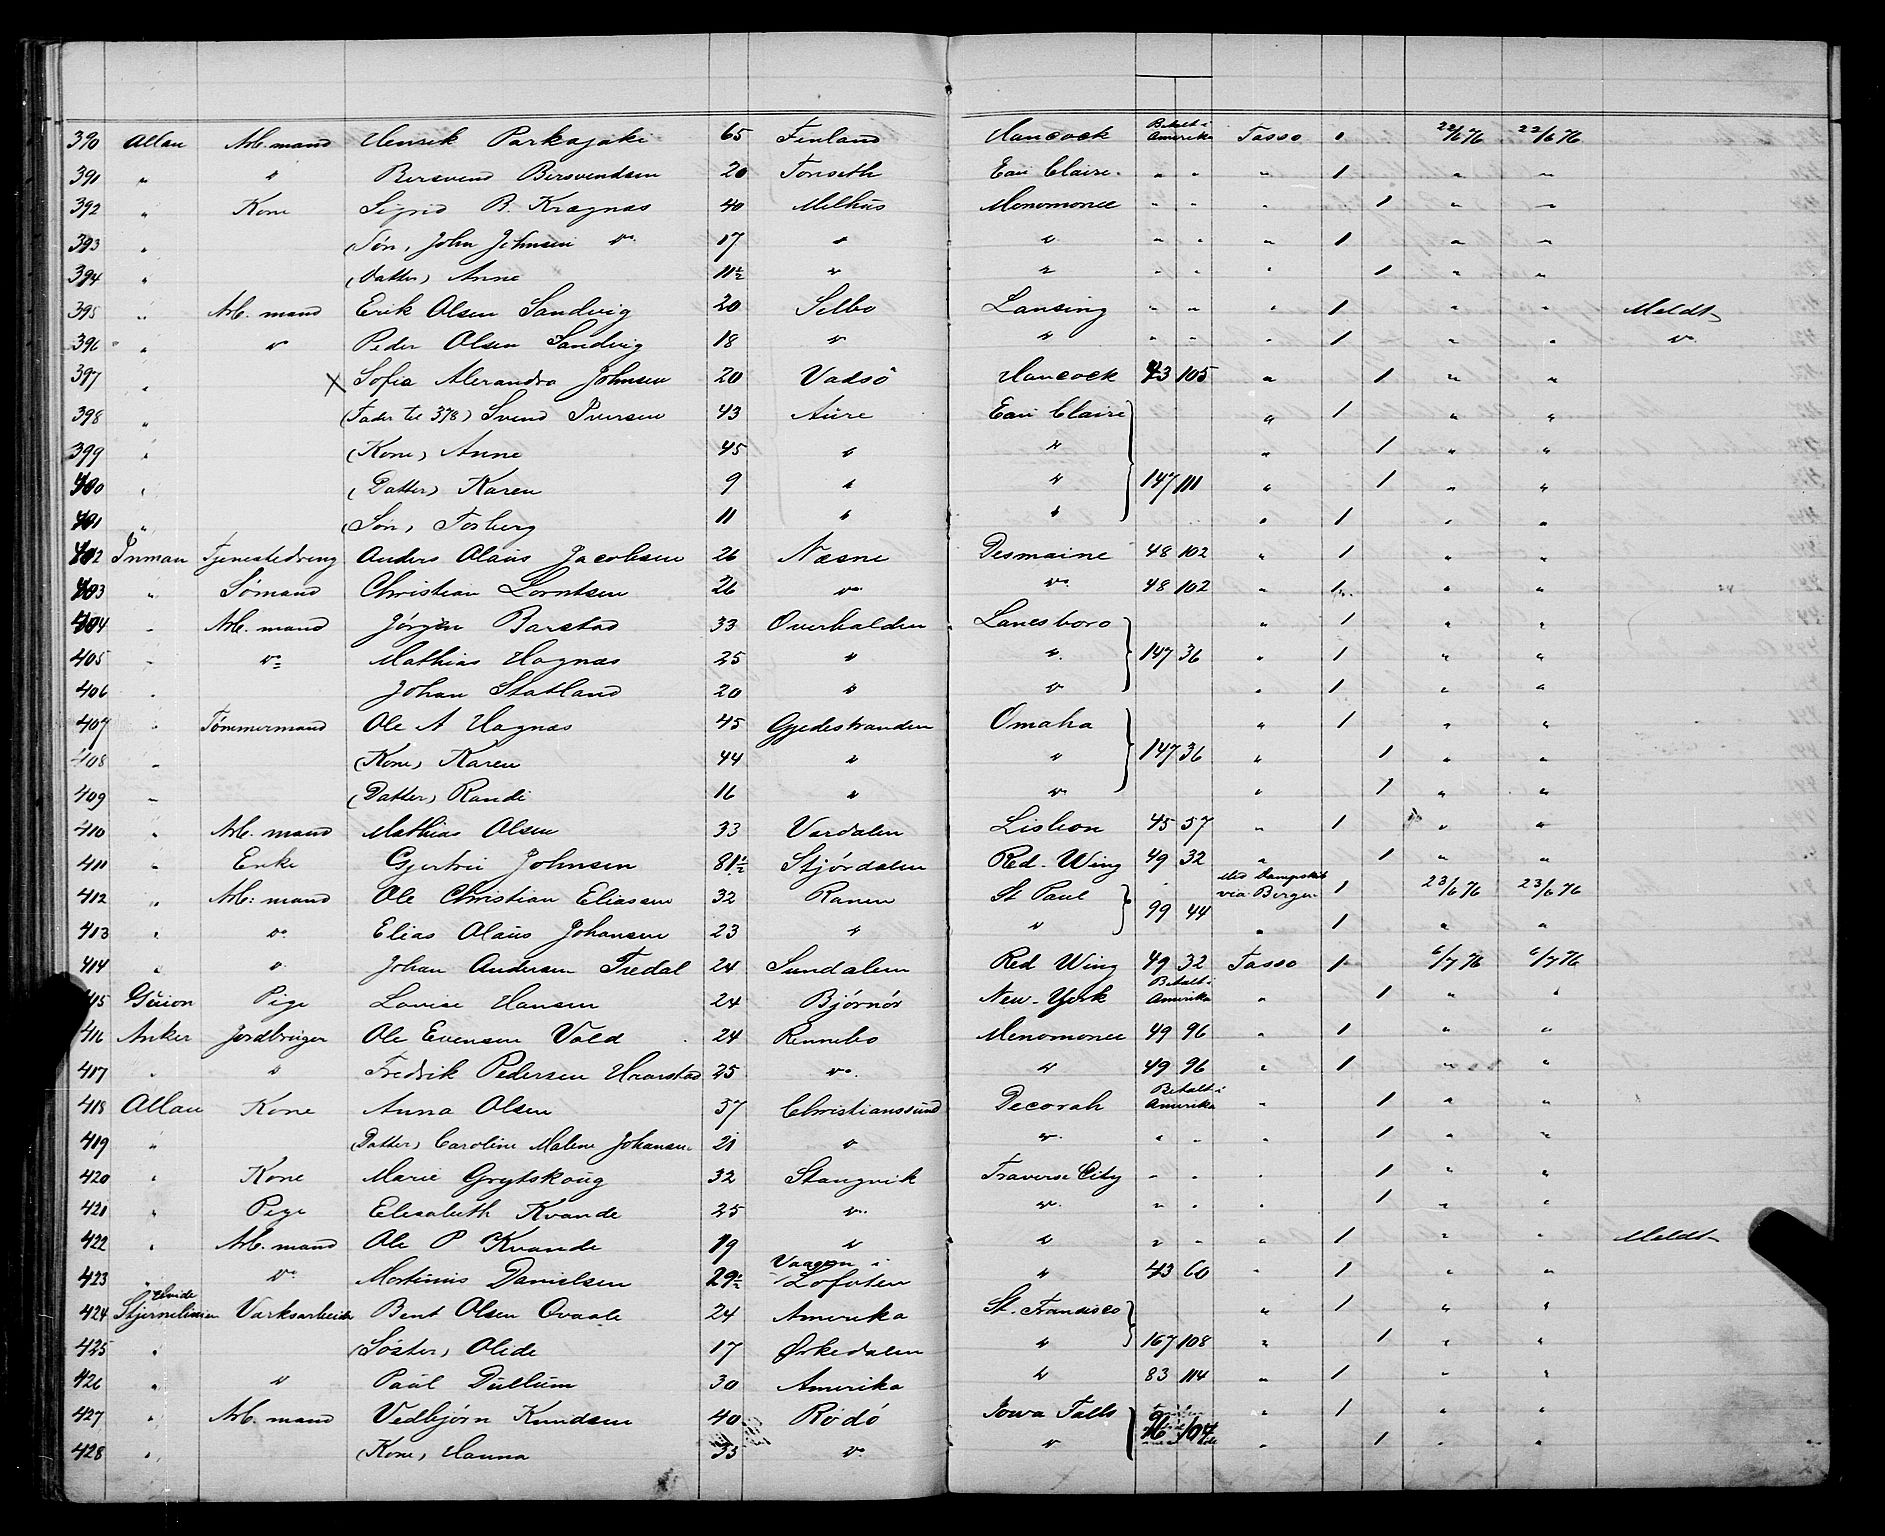 390 Allan Arb. mand Henrik Parkajaki 65 Finland Hancock Betalt i Amerika Tasso 1 22/6 76 22/6 76
391 " " Bersvend Bersvendsen 20 Tonseth Eau Claire " " " 1 " "
392 " Kone Sigrid B. Krægnæs 40 Melhus Menomonee " " " 1 " "
393 " (Søn, John Johnsen do 17 " " " " " 1 " "
394 " (Datter) Anne 11½ " " " " " 1 " "
395 " Arb. mand Erik Olsen Sandvig 20 Selbo Lansing " " " 1 " " Meldt
396 " do Peder Olsen Sandvig 18 " " " " " 1 " " do
397 " X Sofie Alexandra Johnsen 20 Vadsö Hancock 43 105 " 1 " "
398 " (Fader til 378) Svend Iversen 43 Aure Eau Claire " 1 " "
399 " (Kone) Anne 45 " " " 1 " "
400 " (Datter) Karen 9 " " 147 111 " 1 " "
401 " (Søn, Torberg 11 " " " 1 " "
402 Inman Tjenestedreng Anders Olaus Jacobsen 26 Næsne Desmaine 48 102 " 1 " "
403 " Sømand Christian Lorntsen 26 do do 48 102 " 1 " "
404 " Arb. mand Jørgen Barstad 33 Overhalden Lanesboro " 1 " "
405 " do Mathias Hagnæs 25 " " 147 36 " 1 " "
406 " Johan Statland 20 " " " 1 " "
407 " Tømmermand Ole A Hagnæs 45 Gjedestranden Omaha " 1 " "
408 " (Kone) Karen 44 " " 147 36 " 1 " "
409 " (Datter) Randi 16 " " " 1 " "
410 " Arb. mand Mathias Olsen 33 Værdalen Lisbon 45 57 " 1 " "
411 " Enke Gjertrui Johnsen 81½ Stjördalen Red-Wing 49 32 " 1 " "
412 " Arb: mand Ole Christian Eliassen 32 Ranen St Paul Med Dampskib via Bergen 1 23/6 76 23/6 76
413 " do Elias Olaus Johansen 23 " " 99 44 " 1 " "
414 " do Johan Andersen Tredal 24 Sundalen Red Wing 49 32 Tasso 1 6/7 76 6/7 76
415 Guion Pige Lovise Hansen 24 Bjørnør New-York Betalt i Amerika " 1 " "
416 Anker Jordbruger Ole Evensen Vold 24 Rennebo Menomonee 49 96 " 1 " "
417 " " Fredrik Pedersen Haarstad 25 do " 49 96 " 1 " "
418 Allan Kone Anna Olsen 57 Christianssund Decorah Betalt i Amerika " 1 " "
419 " (Datter) Caroline Malene Johansen 21 " " " " " 1 " "
420 " Kone Marie Grytskoug 32 Stangvik Traverse City " " " 1 " "
421 " Pige Elisabeth Kvande 25 do " " " " 1 " "
422 " Arb. mand Ole P Kvande 19 " " " " " 1 " " Meldt
423 " do Mortinus Danielsen 29½ Vaagen i Lofoten " 43 60 " 1 " "
424 Hvide Stjernelinien Værksarbeider Bent Olsen Qvaale 24 Amerika St. Francisco " 1 " "
425 " (Søster) Olide 17 Ørkedalen " 167 108 " 1 " "
426 " " Paul Dullum 30 Amerika " 83 114 " 1 " "
427 " Arb. mand Vedbjørn Knudsen 40 Rödö Iowa Falls " 1 " "
428 " (Kone, Hanna 35 do " 96 104 " 1 " "